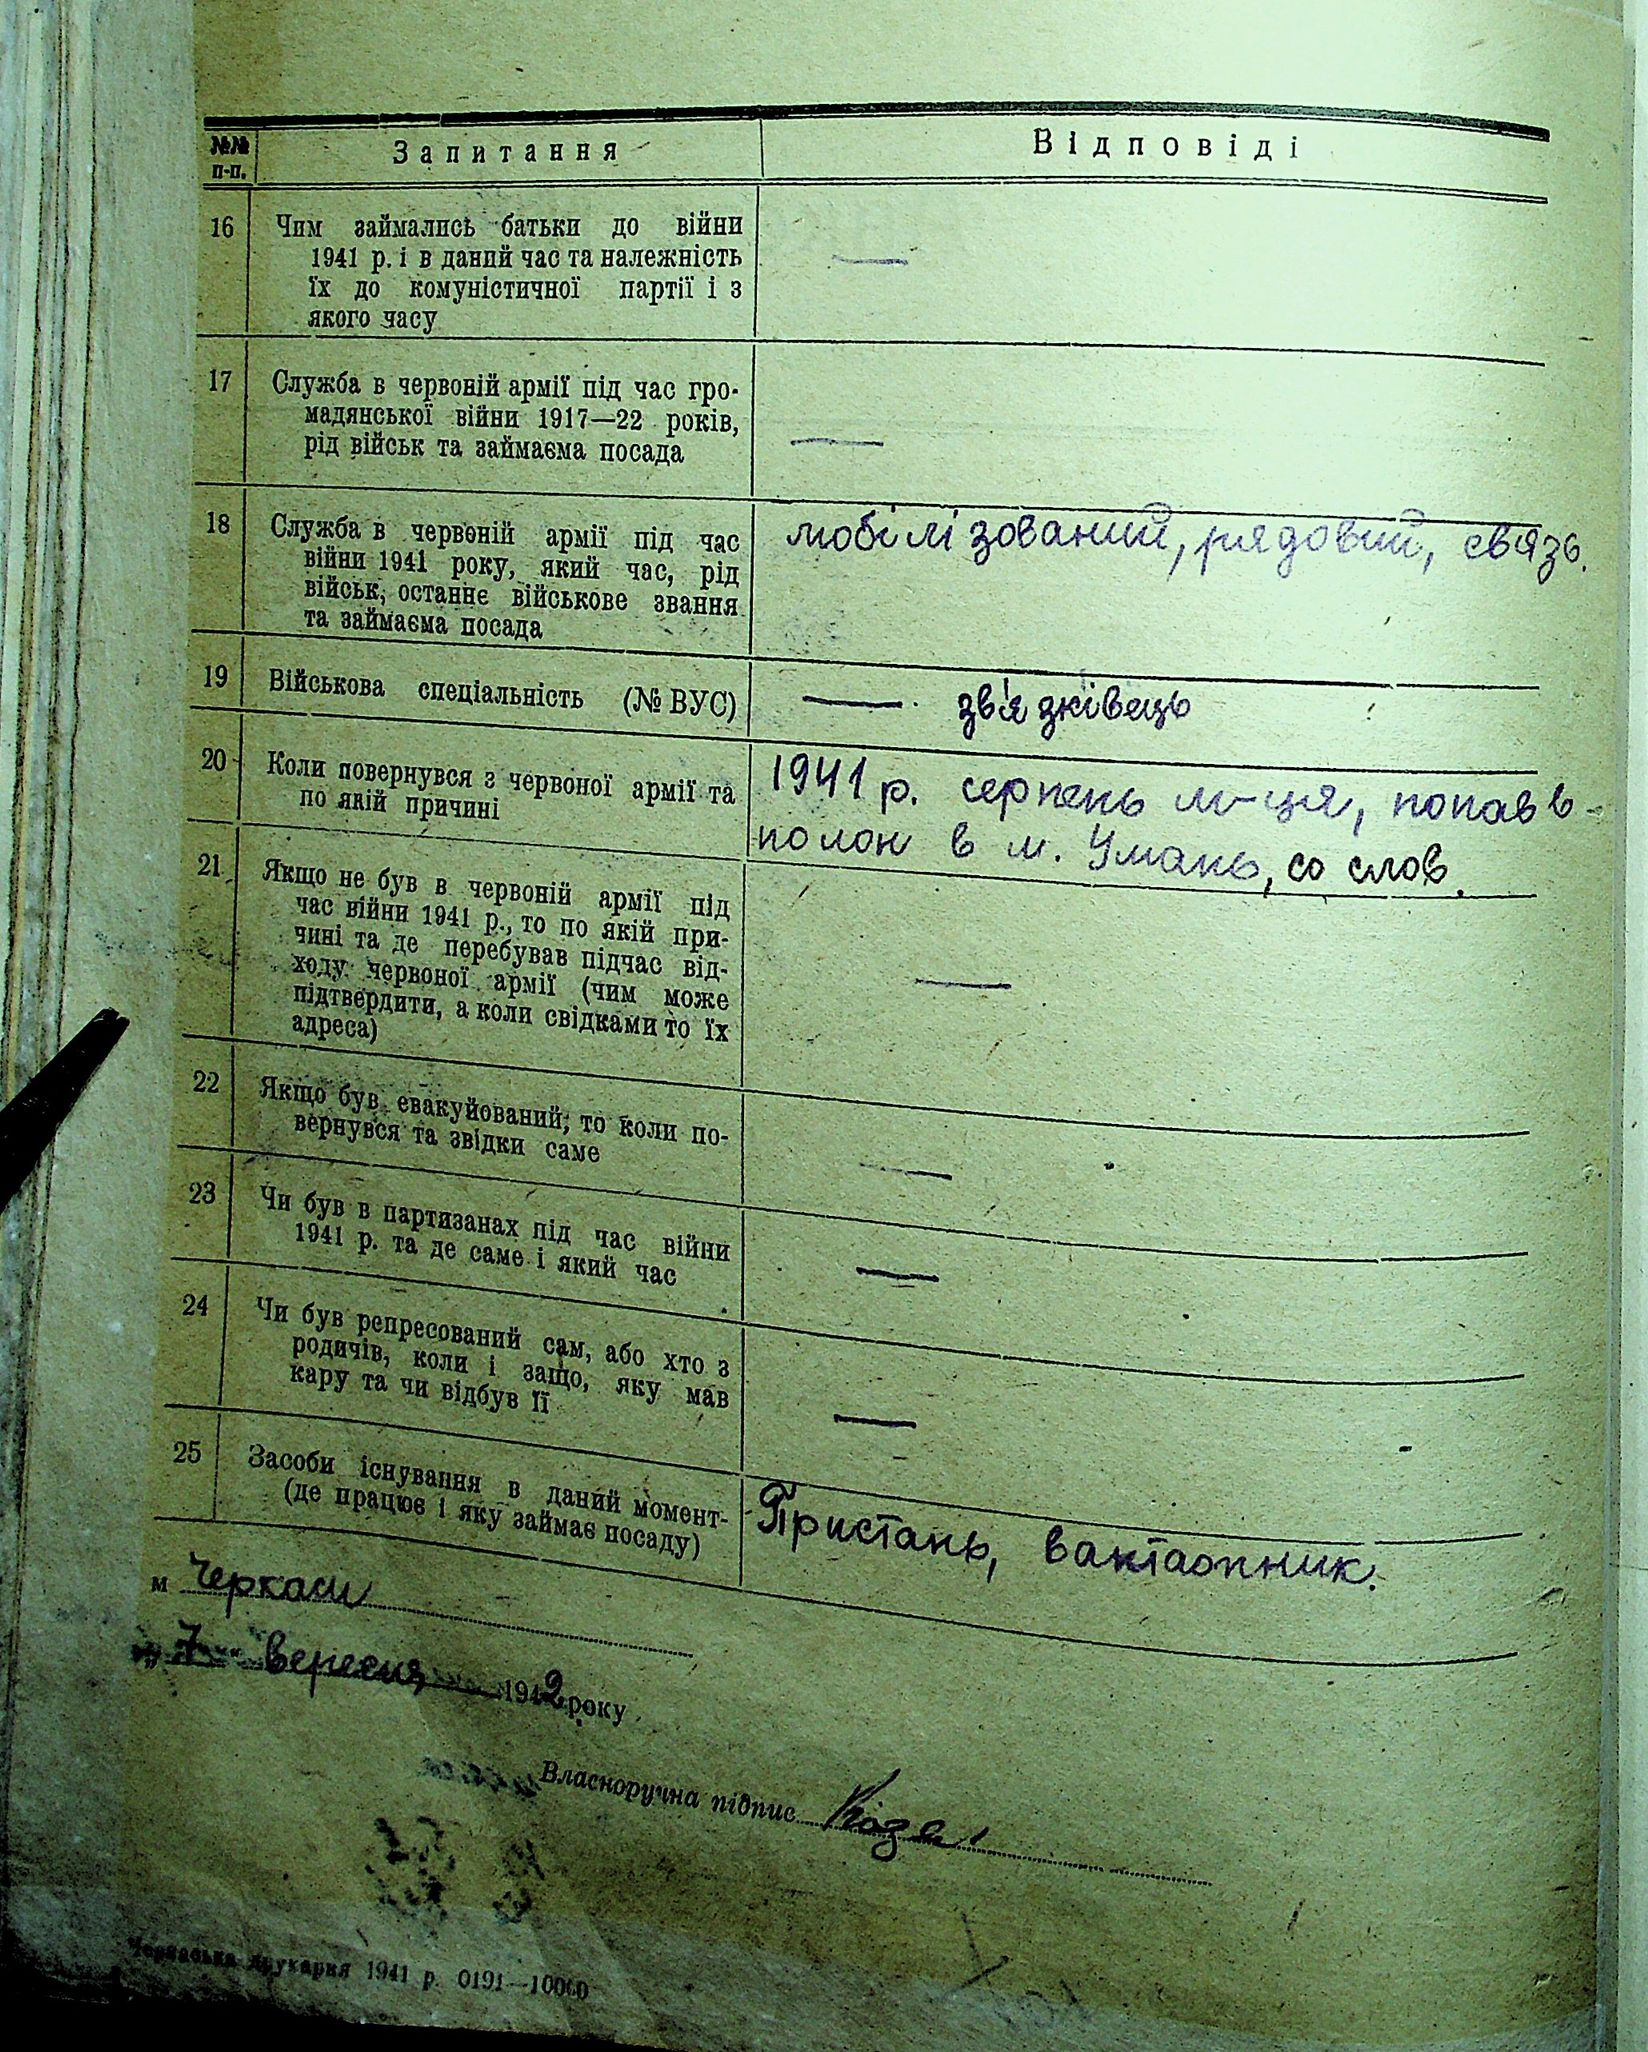 №№ п-п.
Запитання
Відповіді
16
Чим займались батьки до війни
1941 р. і в даний час та належність
їх до комуністичної партії і з
якого часу
—
17
Служба в червоній армії під час гро-
мадянської війни 1917—22 років,
рід військ та займаєма посада
—
18
Служба в червоній армії під час
війни 1941 року, який час, рід
військ, останнє військове звання
та займаєма посада
мобілізований, рядовий, связь.
19
Військова спеціальність (№ ВУС)
— зв'язківець
20
Коли повернувся з червоної армії та
по якій причині
1941 р. серпень м-ця, попав в
полон в м. Умань, со слов.
21
Якщо не був в червоній армії під
час війни 1941 р., то по якій при-
чині та де перебував підчас від-
ходу червоної армії (чим може
підтвердити, а коли свідками то їх
адреса)
—
22
Якщо був евакуйований, то коли по-
вернувся та звідки саме
—
23
Чи був в партизанах під час війни
1941 р. та де саме і який час
—
24
Чи був репресований сам, або хто з
родичів, коли і защо, яку мав
кару та чи відбув її
—
25
Засоби існування в даний момент-
(де працює і яку займає посаду)
Пристань,
м Черкаси
„7" вересня 1942 року
Власноручна підпис
Черкаська друкарня 1941 р. 0191—10000